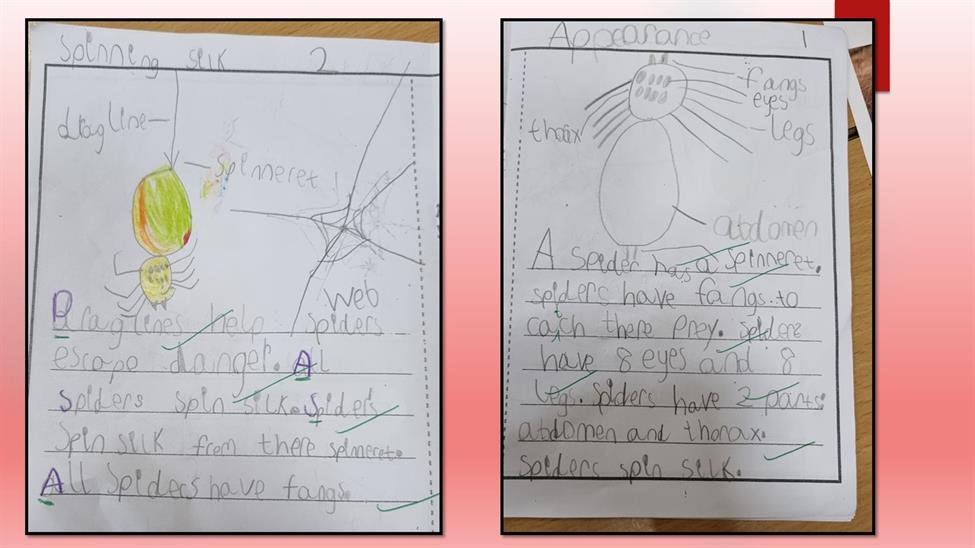 Spinning silk 2
dragline
spinneret
web
Draglines help spiders
escape danger. All
spiders spin silk. Spiders
spin silk from there spinneret.
All spiders have fangs.
Appearance 1
fangs
eyes
thorax
legs
abdomen
A spider has a spinneret.
spiders have fangs. to
catch there prey. spiders
have 8 eyes and 8
legs. Spiders have 2 parts
abdomen and thorax.
spiders spin silk.